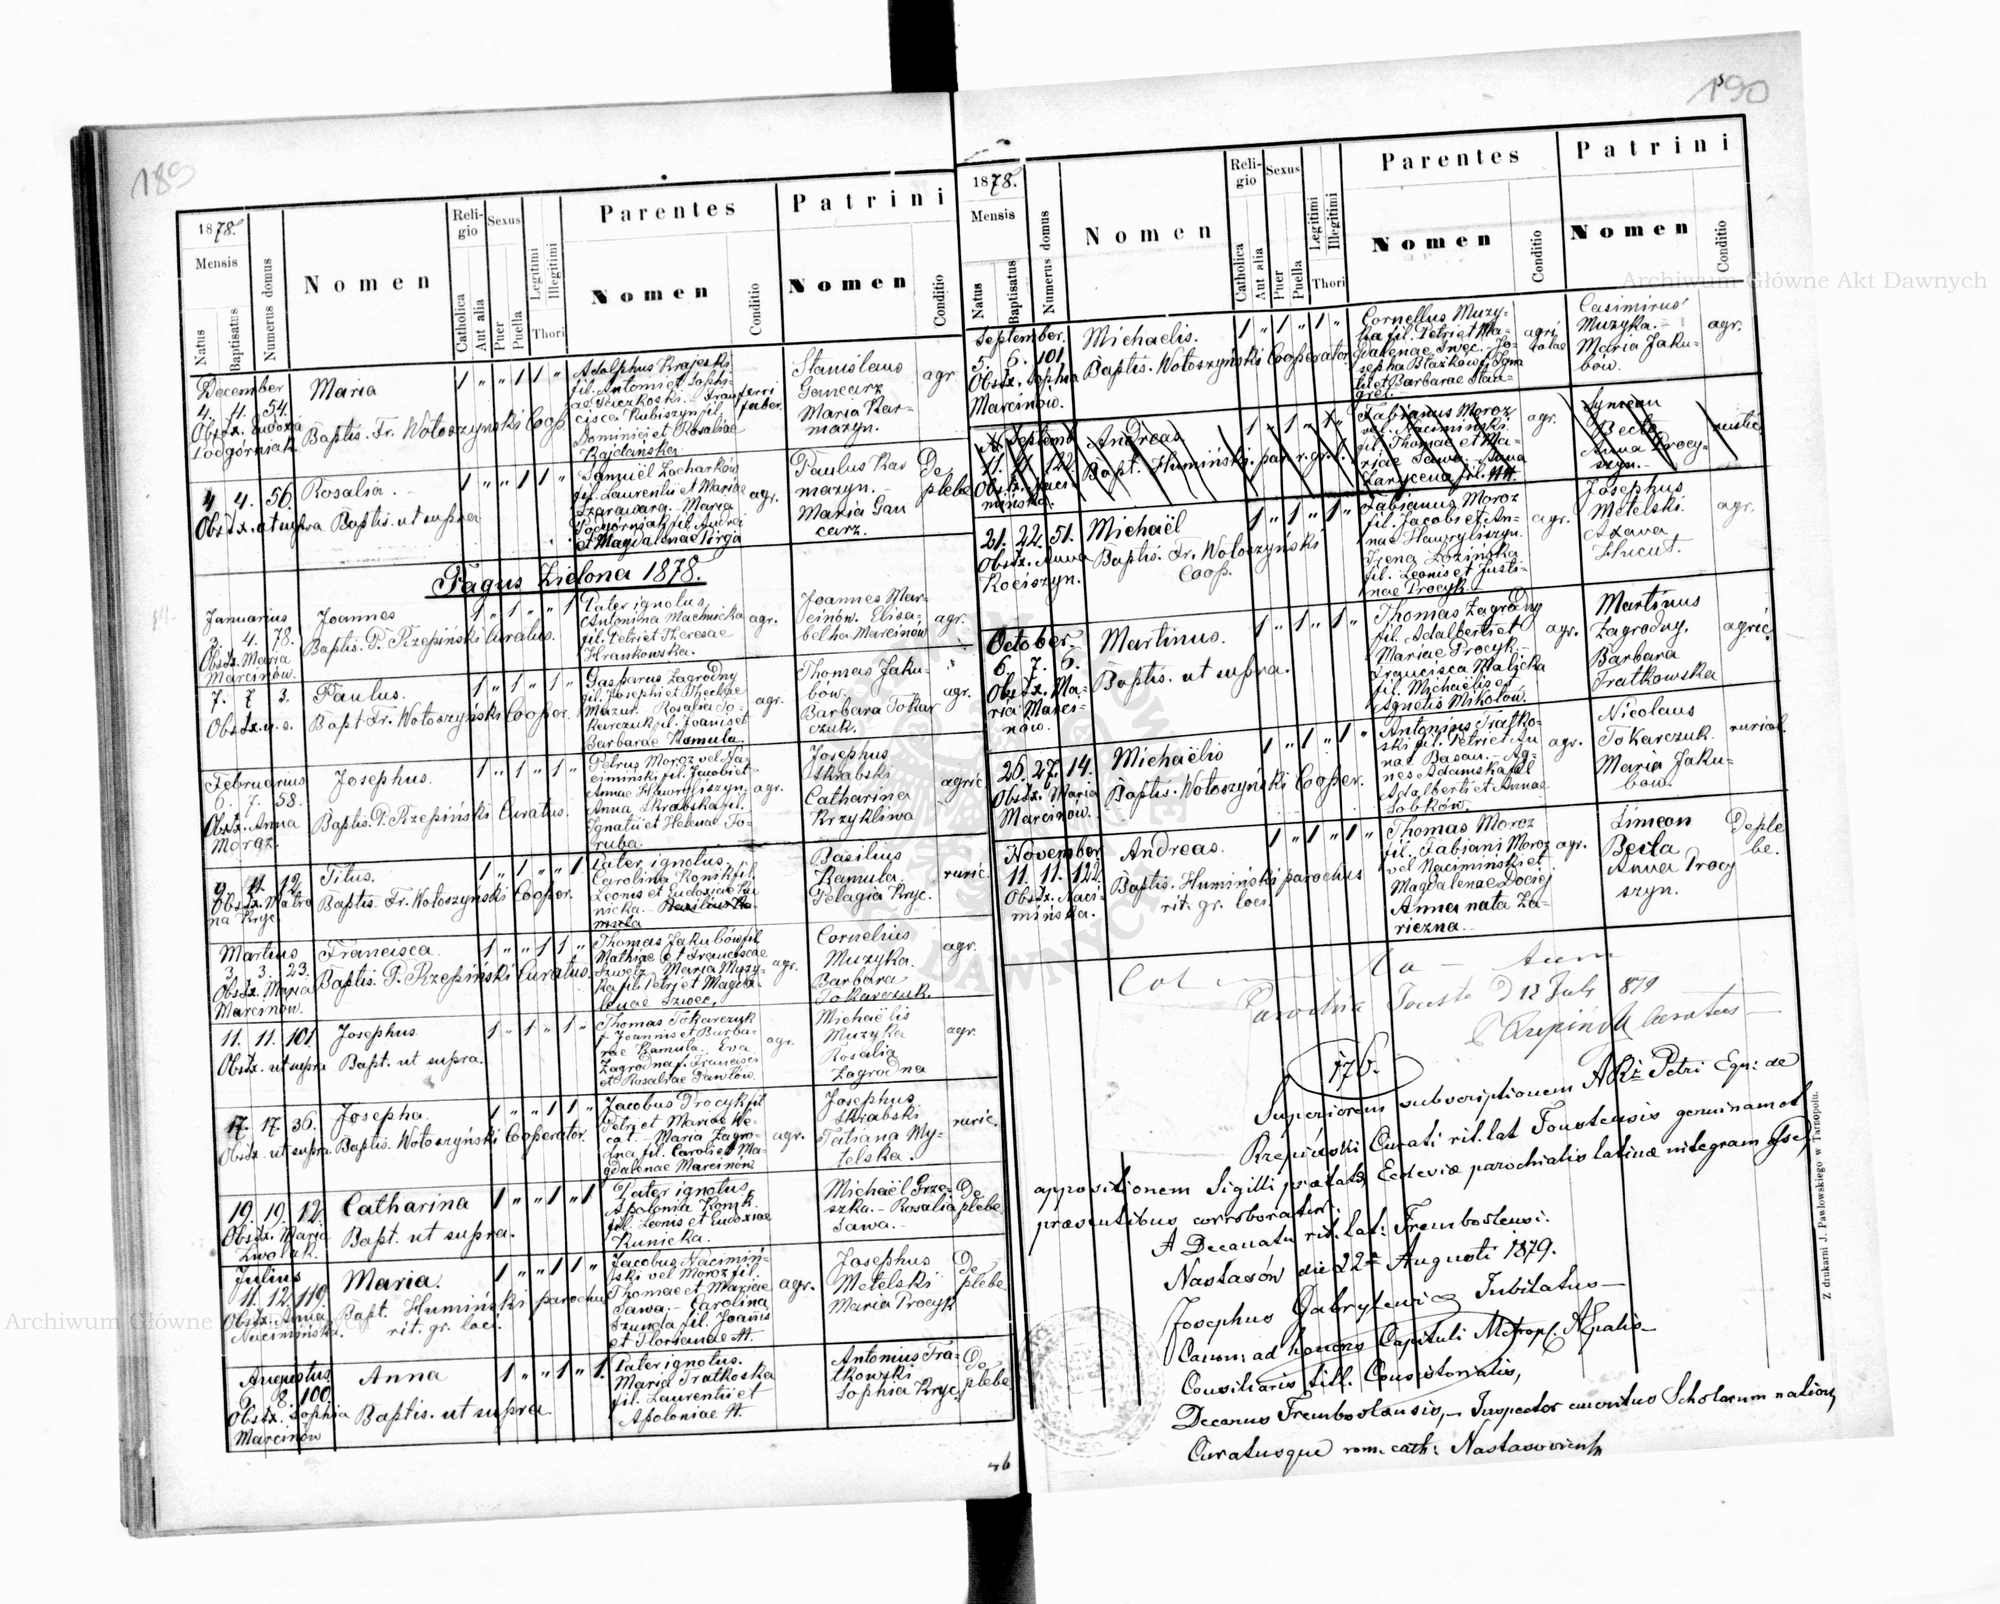 189
1878.
Mensis
Natus
Baptisatus
Numerus domus
Nomen
Religio
Catholica
Aut alia
Sexus
Puer
Puella
Legitimi
Illegitimi
Thori
Parentes
Nomen
Conditio
Patrini
Nomen
Conditio
December
4. 4. 54.
Obstx. Eudoxia
Podgórniak.
Maria
Baptis. Fr. Wołoszyński Coop.
1 " " 1 1 "
Adolphus Krajeski
fil. Antonii et Sophi-
ae Juczkoski. - Fran
cisca Kubiszyn fil.
Dominici et Rosaliae
Kajdanska
ferri
faber.
Stanislaus
Gancarz
Maria Kar-
mazyn.
agr
4 4. 56.
Obstx. ut supra
Rosalia. -
Baptis. ut supra
1 " " 1 1 "
Samuël Zacharków
fil. Laurentii et Mariae
Szarawara. - Maria
Podgórniak fil. Andrei
et Magdalenae Pirga
agr.
Paulus Kar
mazyn. -
Maria Gan
carz.
De
plebe
Pagus Zielona 1878.
Januarius
3. 4. 78.
Obstx. Maria
Marcinow.
Joannes
Baptis. P. Rzepiński Curatus.
1 " 1 " " 1
Pater ignotus.
Antonina Machnicka
fil. Petri et Theresae
Hrankowska.
agr.
Joannes Mar-
cinów. Elisa-
betha Marcinow
agr.
7. 7 3.
Obstx. u. s.
Paulus.
Bapt Fr. Wołoszyński Cooper.
1 " 1 " 1 "
Gasparus Zagrodny
fil. Josephi et Theclae
Mazur. Rosalia To-
karczuk fil. Joanis et
Barbarae Kamula.
agr.
Thomas Jaku-
bów.
Barbara Tokar
czuk.
agr.
Februarius
6. 7. 58.
Obstx. Anna
Moroz.
Josephus.
Baptis. P. Rzepiński Curatus.
1 " 1 " 1 "
Petrus Moroz vel Na-
cimiński fil. Jacobi et
Annae Hawryliszyn.
Anna Skrabska fil.
Ignatii et Helenae To-
ruba.
agr.
Josephus
Skrabski
Catharina
Krzykliwa
agric.
9. 11. 12.
Obstx. Matro
na Kryc.
Titus.
Baptis. Fr. Wołoszyński Cooper.
1 " 1 " " 1
Pater ignotus.
Carolina Konik fil.
Leonis et Eudoxiae Ku
nicka. - Basilius Ka-
mula
Basilius
Kamula.
Pelagia Kryc.
ruric.
Martius
3. 3. 23.
Obstx. Maria
Marcinow.
Francisca.
Baptis. P. Rzepiński Curatus.
1 " " 1 1 "
Thomas Jakubów fil
Mathiae et Franciscae
Szwetz. Maria Muzy-
ka fil. Petri et Magda-
lenae Szwec.
agr.
Cornelius
Muzyka.
Barbara
Tokarczuk.
agr.
11. 11. 101
Obstx. ut supra
Josephus.
Bapt. ut supra.
1 " 1 " 1 "
Thomas Tokarczuk
f. Joannis et Barba-
rae Kamula. Eva
Zagrodna f. Francisci
et Rosaliae Pawlów.
agr.
Michaëlis
Muzyka
Rosalia
Zagrodna
agr.
17. 17. 36.
Obstx. ut supra
Josepha.
Baptis. Wołoszyński Cooperator.
1 " " 1 1 "
Jacobus Procyk fil
Petri et Mariae
Maria Zagro-
dna fil. Caroli et Ma-
gdalenae Marcinów
agr.
Josephus
Skrabski
Tatiana My-
telska.
ruric.
19. 19. 12.
Obstx. Maria
Zwolak.
Catharina
Bapt. ut supra.
1 " " 1 " 1
Pater ignotus
Apolonia Konik.
fil. Leonis et Eudoxiae
Kunicka.
Michaël Grze-
szka. - Rosalia
Sawa. -
De
plebe.
Julius
11. 12. 119.
Obstx. Anna
Nacimińska.
Maria.
Bapt. Humiński parochus
rit. gr. loci.
1 " " 1 1 "
Jacobus Nacimiń-
ski vel Moroz fil.
Thomae et Mariae
Sawa. - Carolina
Szunda fil. Joanis
et Florianae H.
agr.
Josephus
Metelski
Maria Procyk
De
plebe
Augustus
6. 8. 100.
Obstx. Sophia
Marcinów
Anna
Baptis. ut supra.
1 " " 1 " 1.
Pater ignotus.
Maria Tratkoska
fil. Laurentii et
Apoloniae H.
Antonius Tra-
tkowski
Sophia Kryc.
De
plebe.
190
1878.
Mensis
Natus
Baptisatus
Numerus domus
Nomen
Religio
Catholica
Aut alia
Sexus
Puer
Puella
Legitimi
Illegitimi
Thori
Parentes
Nomen
Conditio
Patrini
Nomen
Conditio
September.
5. 6. 101.
Obstx. Sophia
Marcinow.
Michaelis.
Baptis. Wołoszyński Cooperator
1 " 1 " 1 "
Cornelius Muzy-
ka fil. Petri et Ma-
gdalenae Szwec. - Jo-
sepha Błażków f. Igna
tii et Barbarae Stan-
gret.
agri
colae
Casimirus
Muzyka. -
Maria Jaku-
bow.
agr.
Septemb
11. 11. 122.
Obs. B. Naci-
mińska.
Andreas.
Bapt. Humiński par. r. gr. l.
Fabianus Moroz
vel. Nacimiński.
fil. Thomae et Ma-
riae Sawa. - Anna
Zarycena fil. H.
agr.
Symeon
Becla
Anna Procy-
szyn. -
rustic.
21. 22. 51.
Obstx. Anna
Kociszyn.
Michaël
Baptis. Fr. Wołoszyński
Coop.
1 " 1 " 1 "
Fabianus Moroz
fil. Jacobi et An-
nae Hawryliszyn.
Irena Łozińska
fil. Leonis et Justi-
nae Procyk.
agr.
Josephus
Metelski.
agr.
October.
6. 7. 6.
Obstx. Ma-
ria Marci-
nów.
Martinus.
Baptis. ut supra.
1 " 1 " 1 "
Thomas Zagrodny
fil. Adalberti et
Mariae Procyk. -
Francisca Malicka
fil. Michaëlis et
Agnetis Mikołów.
agr.
Martinus
Zagrodny.
Barbara
Tratkowska
agric.
26. 27. 14.
Obstx. Maria
Marcinow.
Michaëlis
Baptis. Wołoszyński Cooper.
1 " 1 " 1 "
Antonius Tratko-
ski fil. Petri et An
nae Basau. - Ag-
nes Adamska fil
Adalberti et Annae
Sobków.
agr.
Nicolaus
Tokarczuk.
Maria Jaku-
bow.
November
11. 11. 122.
Obstx. Naci-
mińska.
Andreas.
Baptis. Humiński parochus
rit. gr. loci.
1 " 1 " 1 "
Thomas Moroz
fil. Fabiani Moroz
vel Nacimiński et
Magdalenae Dociej
Anna nata Za-
riczna. -
agr.
Simeon
Becla
Anna Procy
szyn.
De ple
be.
Col - la - tum
Parochia Touste D 12 Juli 879
P Rzepiński Curatus
176.
Superiorem subscriptionem ARi: Petri Equ: de
Rzepiński Curati rit. lat Toustensis genuinam et
appositionem Sigilli praefatae Ecclesiae parochialis latinae integram esse
praesentibus corroboratur.
A Decanatu rit. lat: Trembowlensi.
Nastasów die 22a Augusti 1879.
Josephus Gabryelewicz Jubilatus -
Canon: ad honores Capituli Metropl. Aepalis -
Consiliarius titl. Consistorialis,
Decanus Trembowlensis, - Inspector emeritus Scholarum nation,
Curatusque rom. cath: Nastasoviensis
Z drukarni J. Pawłowskiego w Tarnopolu.
Archiwum Główne Akt Dawnych
Archiwum Główne Akt Dawnych